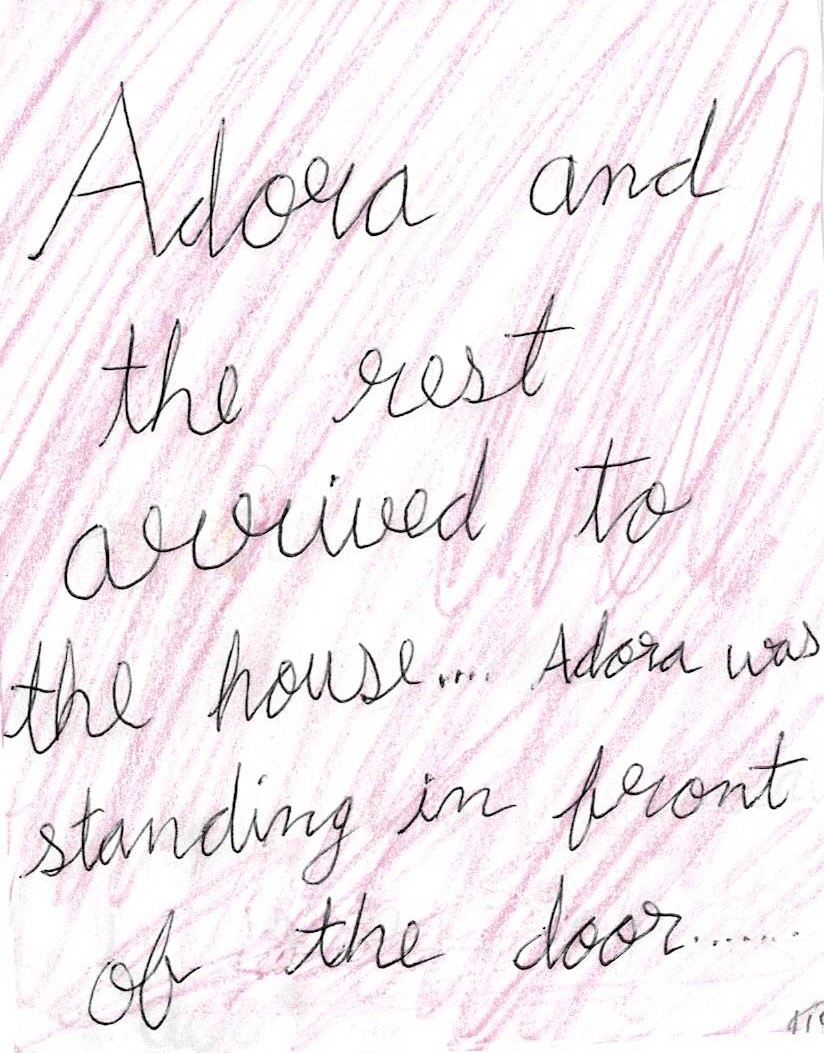 Adora and
the rest
arrived to
the house.... Adora was
standing in front
of the door.......